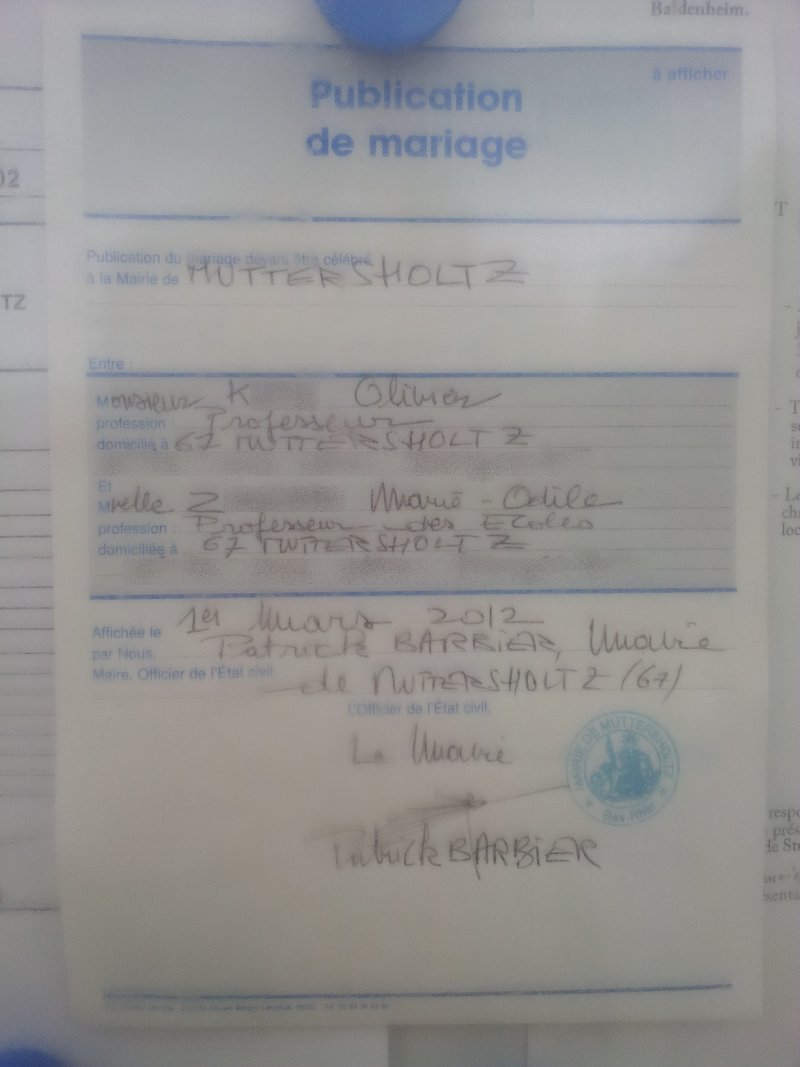 Baldenheim.
à afficher
Publication
de mariage
Publication du mariage devant être célébré
à la Mairie de MUTTERSHOLTZ
Entre :
Monsieur K Olivier
profession : Professeur
domicilié à 67 MUTTERSHOLTZ
Et
Melle Z Marie-Odile
profession : Professeur des Ecoles
domiciliée à 67 MUTTERSHOLTZ
Affichée le 1er Mars 2012
par Nous, Patrick BARBIER, Maire
Maire, Officier de l'État civil. de MUTTERSHOLTZ (67)
L'Officier de l'État civil,
Le Maire
MAIRIE DE MUTTERSHOLTZ
Bas-Rhin
Patrick BARBIER
02
TZ